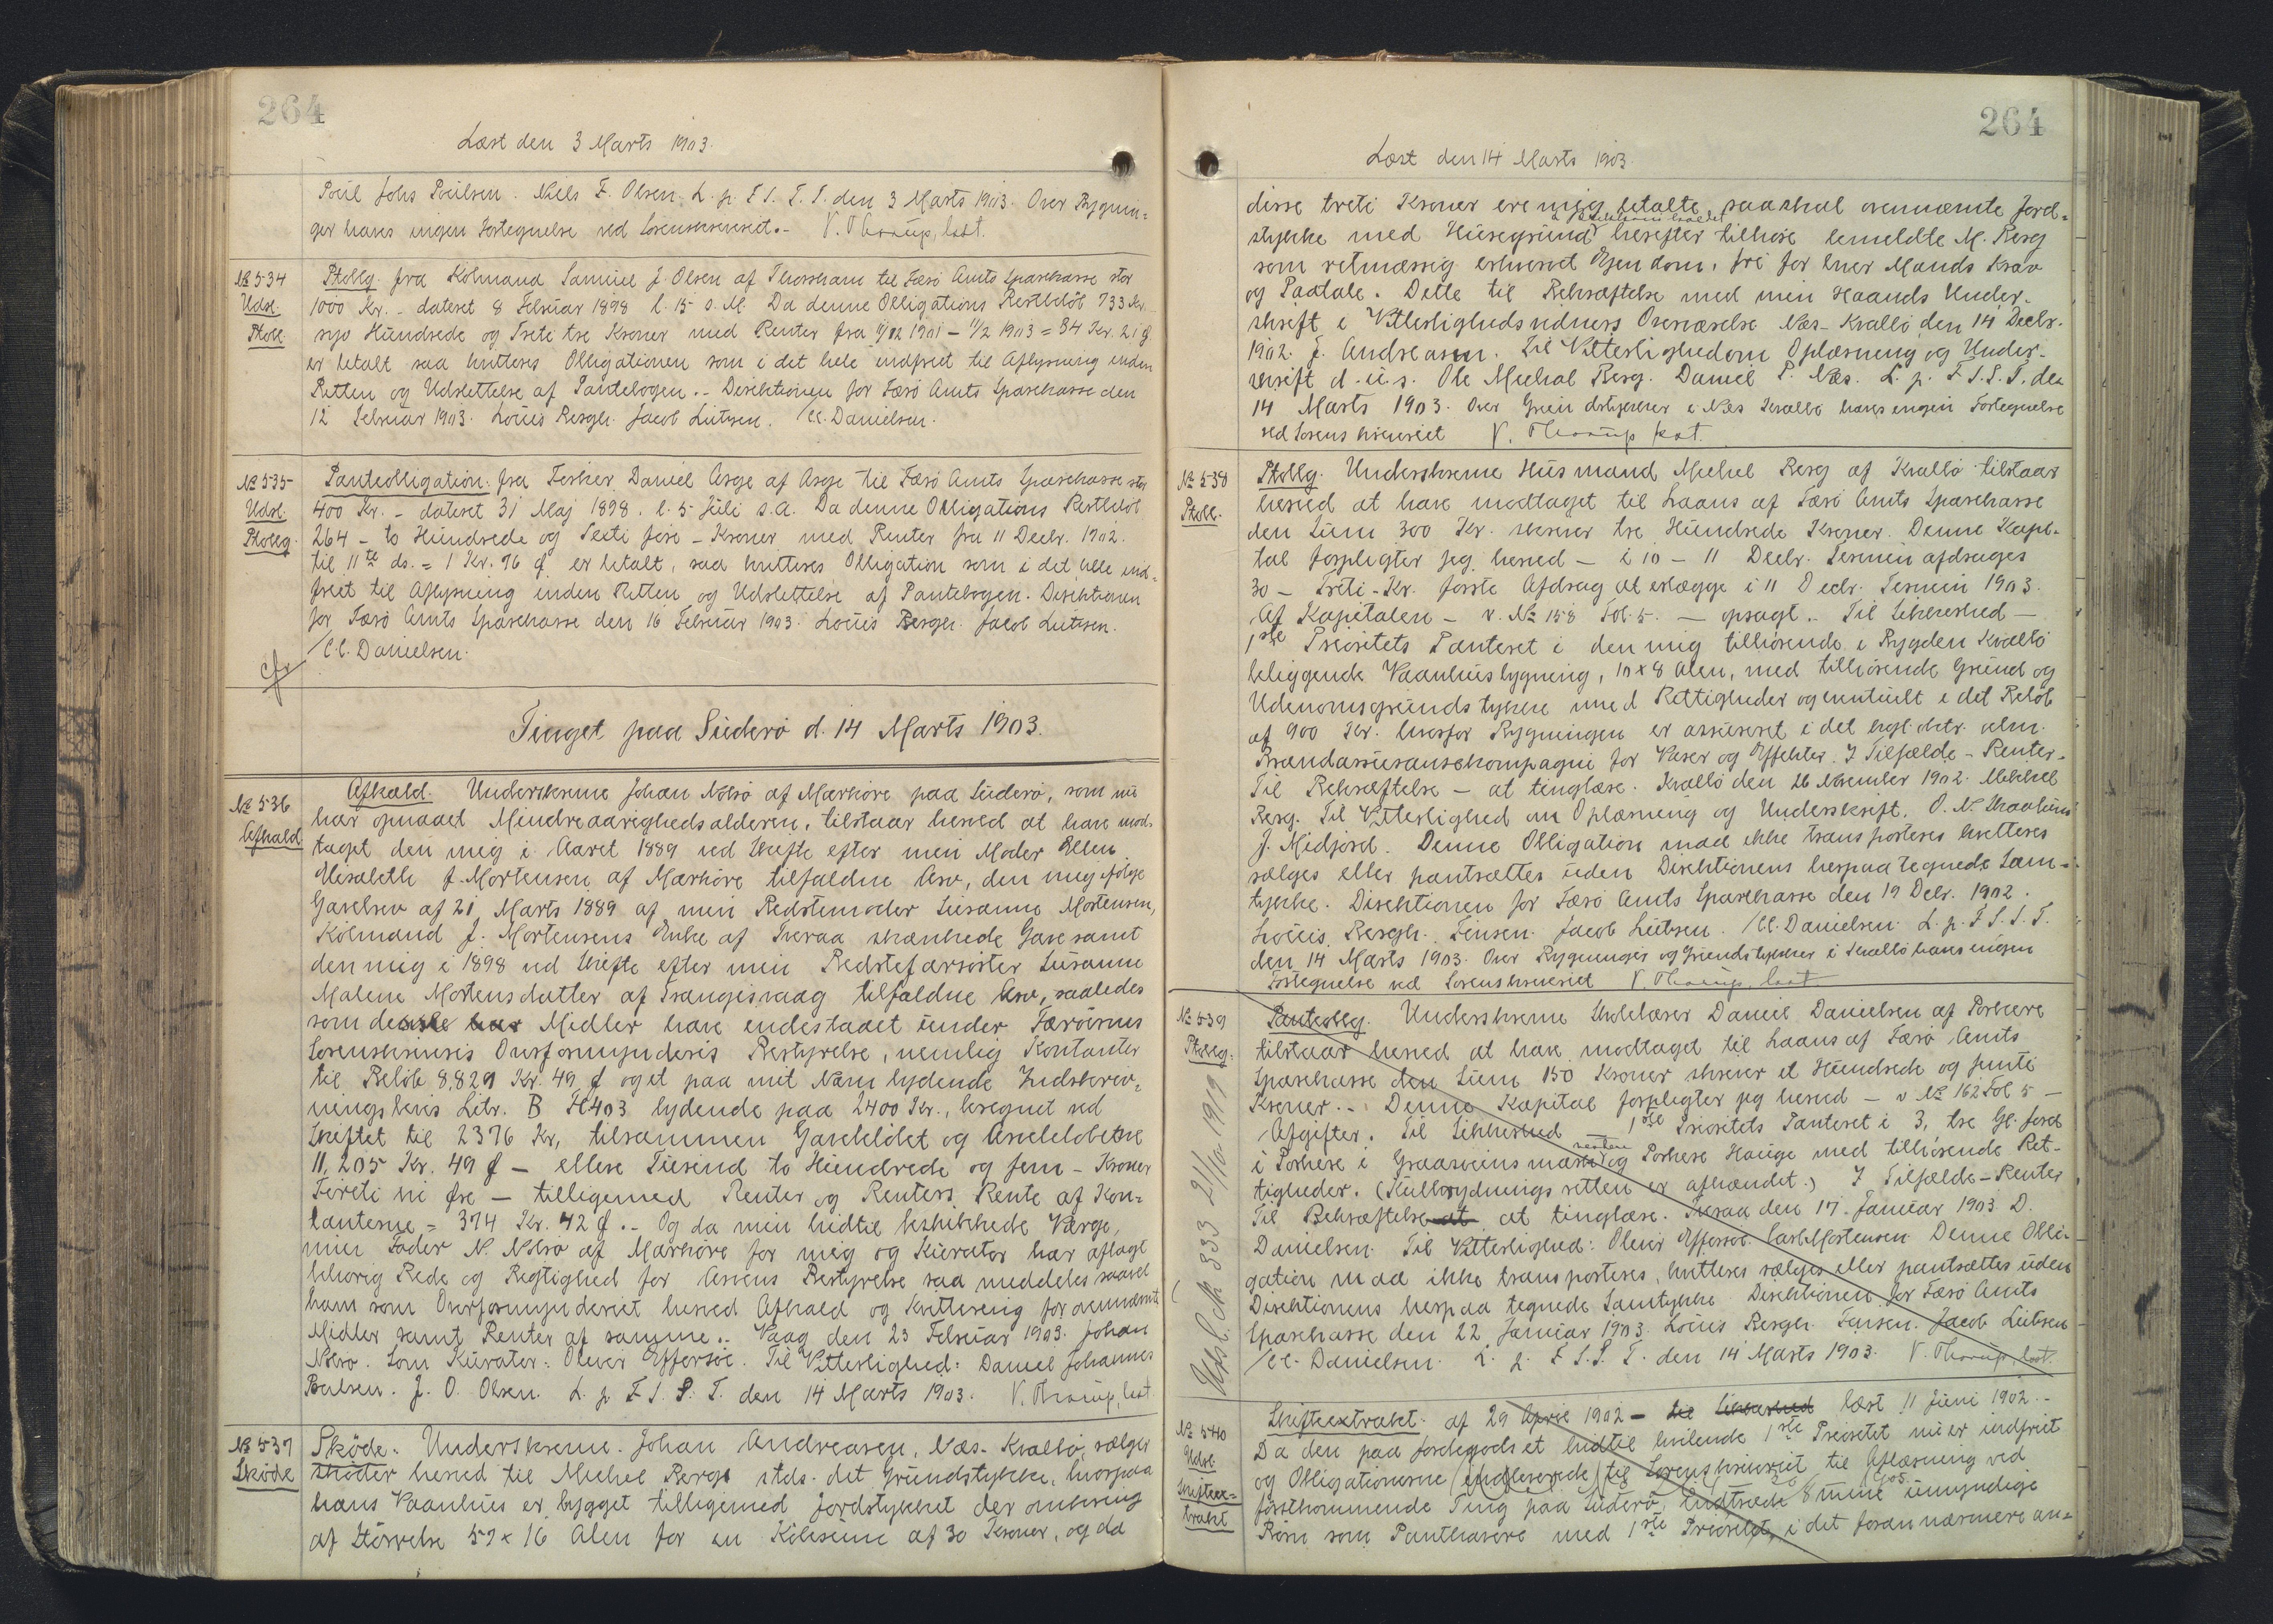 264
Læst den 3 Marts 1903.
Poul Johs Poulsen. Niels F. Olsen. L. p. F. S. T. S. den 3 Marts 1903. Over Bygnin=
ger haves ingen Fortegnelse ved Sorenskriveriet.- V. Thorup, kst.
№ 534
Udsl.
Ptobl.
Ptoblg. fra Købmand Samuel J. Olsen af Thorshavn til Færø Amts Sparekasse stor
1000 Kr. - dateret 8 Februar 1898 l. 15 s. M. Da denne Obligations Restbeløb 733 Kr.
syv Hundrede og Trete tre Kroner med Renter fra 11/12 1901 - 11/2 1903 = 34 Kr. 21 Ø
er betalt saa kvitteres Obligationen som i det hele indfriet til Aflysning inden
Retten og Udslettelse af Pantebogen.- Direktionen for Færø Amts Sparekasse den
12 Februar 1903. Louis Bergh. Jacob Lützen. /C.C. Danielsen.
№ 535
Udsl.
Ptoblg.
Panteobligation. fra Fisker Daniel Arge af Arge til Færø Amts Sparekasse stor
400 Kr. - dateret 31 Maj 1898. l. 5 Juli s. A. Da denne Obligations Restbeløb
264 - to Hundrede og Seeti fire - Kroner med Renter fra 11 Decbr. 1902.
til 11te ds. = 1 Kr. 76 Ø er betalt, saa kvitteres Obligation som i det hele ind=
friet til Aflysning inden Retten og Udslettelse af Pantebogen. Direktionen
for Færø Amts Sparekasse den 16 Februar 1903. Louis Bergh. Jacob Lützen.
/C.C. Danielsen.
Tinget paa Suderø d. 14 Marts 1903.
№ 536
Afkald
Afkald. Underskrevne Johan Nolsø af Marhøre paa Suderø, som nu
har opnaaet Mindreaarighedsalderen, tilstaar herved at have mod-
taget den mig i Aaret 1889 ved Skifte efter min Moder Ellen
Elesabeth J. Mortensen af Marhøre tilfaldne Arv, den mig ifølge
Gavebrev af 21 Marts 1889 af min Bedstemoder Susanne Mortensen,
Købmand J. Mortensens Enke af Tveraa skænkede Gave samt
den mig i 1898 ved Skifte efter min Bedstefarsøster Susanne
Malene Mortensdatter af Trangisvaag tilfaldne Arv, saaledes
som de Midler have endestaaet under Færøernes
Sorenskriveris Overformynderis Bestyrelse, nemlig Kontanter
til Beløb 8.829 Kr. 49 Ø og et paa mit Navn lydende Indskriv=
ningsbevis Litr. B 403 lydende paa 2400 Kr., beregnet ved
Skiftet til 2376 Kr, tilsammen Gavebeløbet og Arvebeløbene
11,205 Kr. 49 Ø - elleve Tusind to Hundrede og fem - Kroner
Førreti ni Øre - tilligemed Renter og Renters Rente af Kon=
tanterne = 374 Kr. 42 Ø.- Og da min hidtil beskikkede Værge,
min Fader N. Nolsø af Marhøre for mig og Kurator har aflagt
behørig Rede og Rigtighed for Arvens Bestyrelse saa meddeles saavel
ham som Overformynderiet herved Afkald og Kvittering for ovennævnte
Midler samt Renter af samme.- Vaag den 23 Februar 1903. Johan
Nolsø. Som Kurator: Oliver Effersøe. Til Vitterlighed: Daniel Johannes
Poulsen. J. O. Olsen. L. p. F. S. S. T. den 14 Marts 1903. V. Thorup, kst.
№ 537
Skøde
Skøde. Underskrevne Johan Andreasen, Næs-Kvalbø, sælger
skøder herved til Michel Berg stds. det Grundstykke, hvorpaa
hans Vaanhus er bygget tilligemed Jordstykket der omkring
af Størrelse 57 x 16 Alen for en Købesum af 30 Kroner, og da
264
Læst den 14 Marts 1903.
disse treti Kroner ere mig betalte, saa skal ovennævnte Jord=
stykke med Husegrund herefter tilhøre bemeldte M. Berg
som retmæssig erhvervet Ejendom, fri for hver Mands Krav
og Paatale. Dette til Bekræftelse med min Haands Under-
skrift i Vitterlighedsvidners Overværelse Næs-Kvalbø den 14 Decbr.
1902. J. Andreasen. Til Vitterlighed om Oplæsning og Under-
skrift d. u. s. Ole Michal Berg. Daniel P. Næs. L. p. F. S. S. T. den
14 Marts 1903. Over Grundstykker i Næs Kvalbø haves ingen Fortegnelse
ved Sorenskriveriet V. Thorup kst.
№ 538
Ptobl.
Ptoblg. Underskrevne Husmand Michel Berg af Kvalbø tilstaar
herved at have modtaget til Laans af Færø Amts Sparekasse
den Sum 300 Kr. skriver tre Hundrede Kroner. Denne Kapi-
tal forpligter jeg herved - i 10 - 11 Decbr. Termin afdrages
30 - Treti - Kr. første Afdrag at erlægge i 11 Decbr. Termin 1903.
Af Kapitalen - v. № 158 Fol. 5. - opsagt.- Til Sikkerhed -
1ste Prioritets Panteret i den mig tilhørende i Bygden Kvalbø
beliggende Vaanhusbygning, 10 x 8 Alen, med tilhørende Grund og
Udenomsgrundstykke med Rettigheder og eventuelt i det Beløb
af 900 Kr. hvorfor Bygningen er assureret i det kgl. oktr. alm.
Brandassurancekompagni for Varer og Effekter. I Tilfælde - Renter-
Til Bekræftelse - at tinglæse. Kvalbø den 26 November 1902. Michel
Berg. Til Vitterlighed om Oplæsning og Underskrift. O. N. Skaalum
J. Midjord. Denne Obligation maa ikke transporteres kvitteres
sælges eller pantsættes uden Direktionens herpaa tegnede Sam=
tykke. Direktionen for Færø Amts Sparekasse den 19 Decbr. 1902.
Louis Bergh. Jensen. Jacob Lützen. /C.C. Danielsen. L. p. F. S. S. T.
den 14 Marts 1903. Over Bygninger og Grundstykker i Kvalbø haves ingen
Fortegnelse ved Sorenskriveriet V. Thorup, kst
№ 539
Ptoblg.
Panteoblg. Underskrevne Skolelærer Daniel Danielsen af Porkere
tilstaar herved at have modtaget til Laans af Færø Amts
Sparekasse den Sum 150 Kroner skriver et Hundrede og femti
Kroner.- Denne Kapital forpligter jeg herved - v № 162 Fol 5 -
Afgifter. Til Sikkerhed - 1ste Prioritets Panteret i 3, tre Gl. Jord
i Porkere i Graasteins mærke og Porkere Hauge med tilhørende Ret-
tigheder. (Kulbrydningsretten er afhændet.) I Tilfælde - Renter
Til Bekræftelse at tinglæse. Tveraa den 17. Januar 1903. D.
Danielsen. Til Vitterlighed: Oliver Effersøe. Carl Mortensen. Denne Obli-
gation maa ikke transporteres, kvitteres sælges eller pantsættes uden
Direktionens herpaa tegnede Samtykke. Direktionen for Færø Amts
Sparekasse den 22 Januar 1903. Louis Bergh. Jensen. Jacob Lützen
/C.C. Danielsen. L. p. F. S. S. T. den 14 Marts 1903. V. Thorup, kst.
№ 540
Udsl.
Skifteex=
trakt
Skifteextrakt. af 29 April 1902 - læst 11 Juni 1902.-
Da den paa Jordegodset hidtil hvilende 1ste Prioritet nu er indfriet
og Obligationerne (indleverede) til Sorenskriveriet til Aflæsning ved
førstkommende Ting paa Suderø, indtræde mine umyndige
Børn som Panthavere med 1ste Prioritet, i det foran nærmere an=